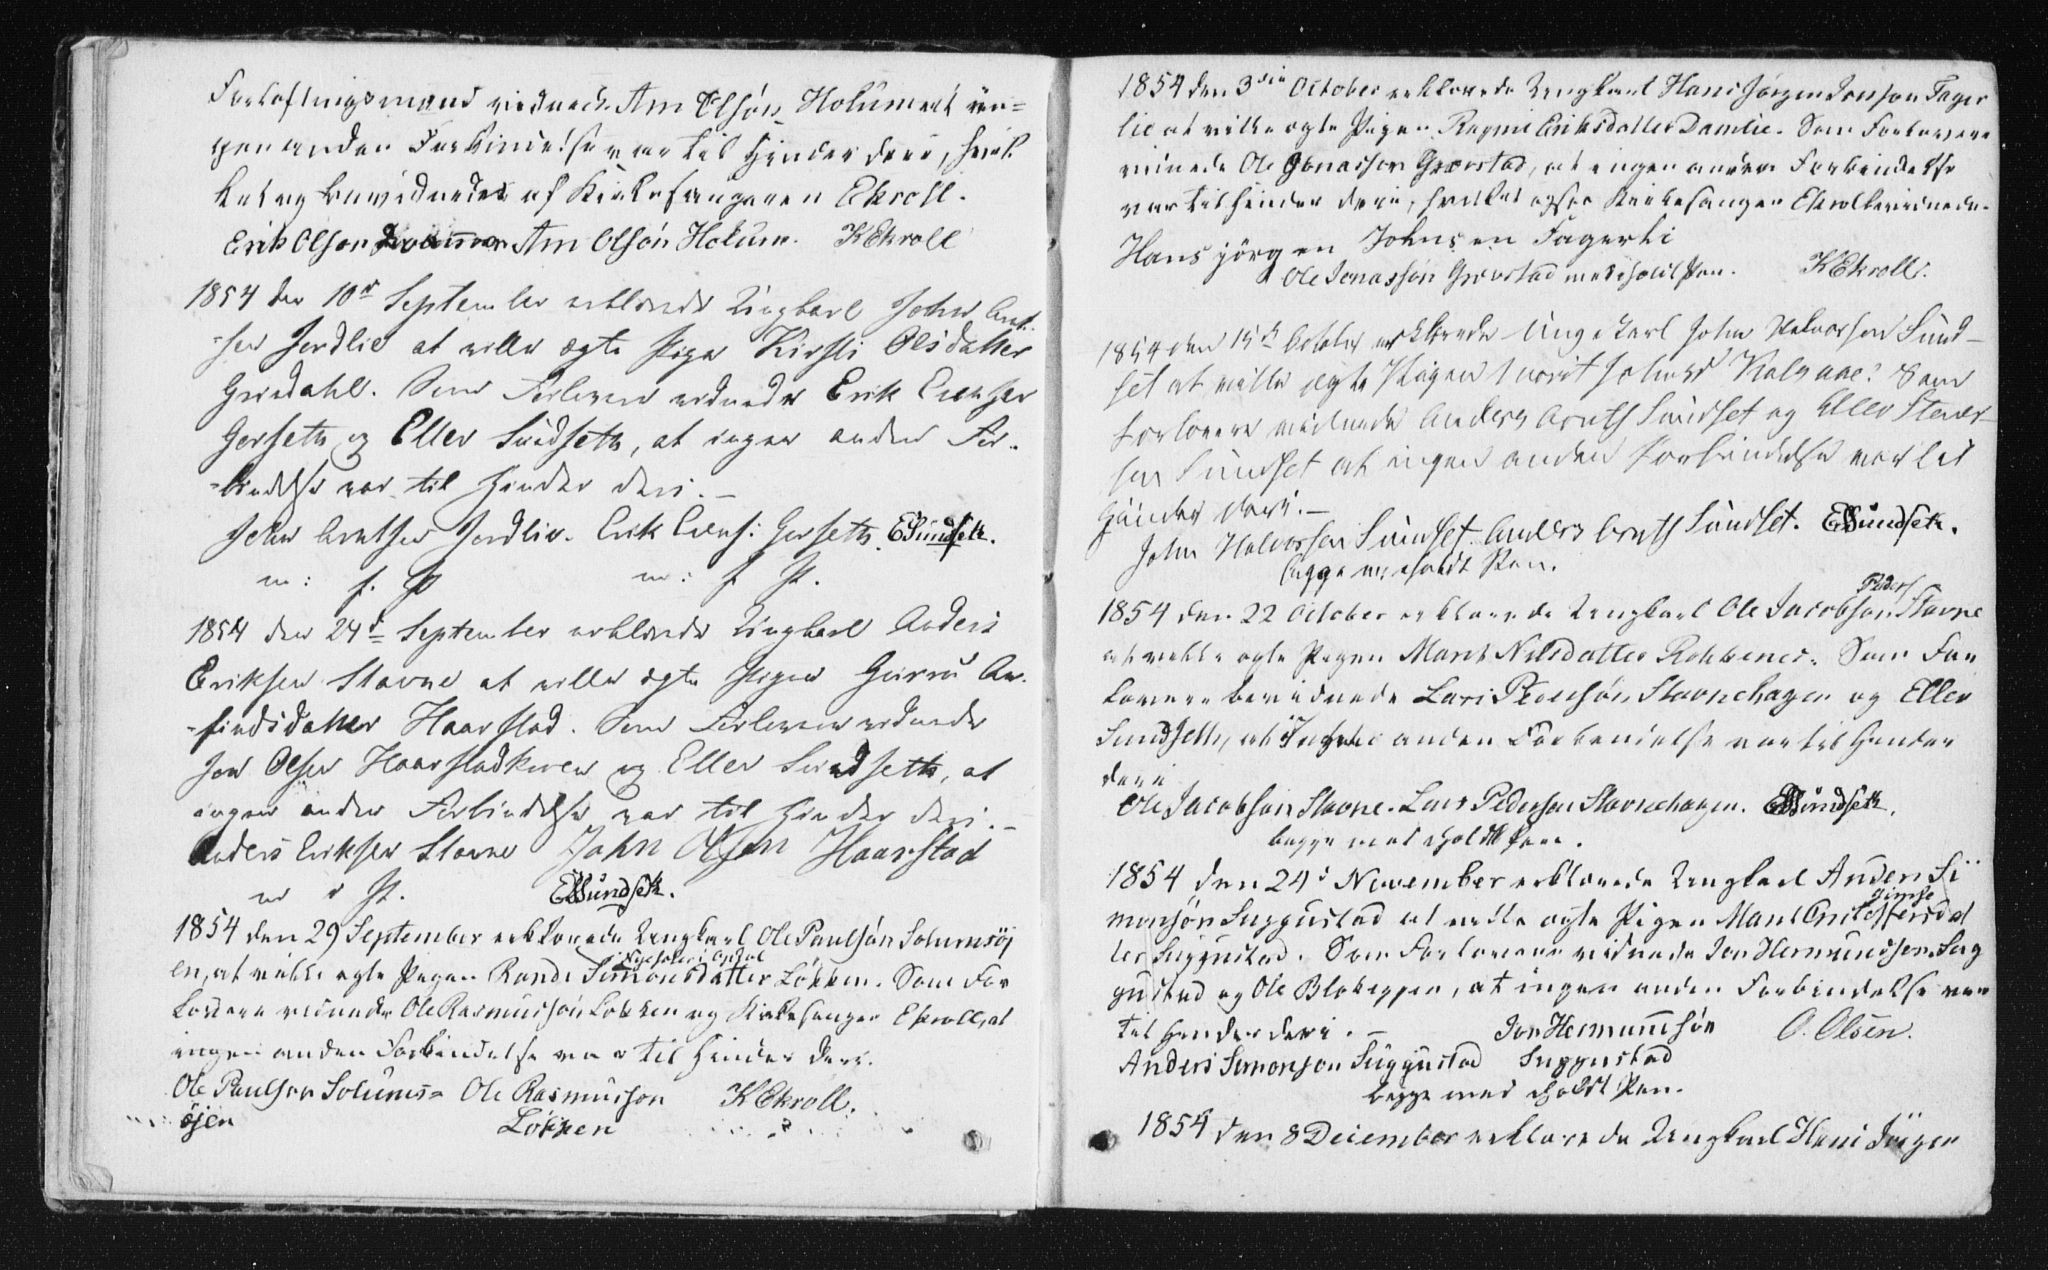 Forlovningsmand vidnede Arn Olsøn Holum at in-
gen anden Forbindelse var til Hinder deri, hvil-
ket og bevidnedes af Kirkesangeren Ekroll.
Erik Olson Arn Olsøn Holum. KEkroll
1854 den 10de September erklærede Ungkarl John Arnt-
sen Jordlie at ville ægte Pige Kirsti Olsdatter
Grindahl. Som Forlovere vidnede Erik Erensen
Gorseth og Eller Sundseth, at ingen anden For-
bindelse var til Hinder deri.
John Arntsen Jordlie. Erik Erens: Gorseth. ESundseth.
m: f. P m: f P.
1854 den 24de September erklærede Ungkarl Anders
Eriksen Stavne at ville ægte Pigen Gurru Ar-
findsdatter Haarstad. Som Forlovere vidnede
Jon Olsen Haarstadkveen og Eller Sundseth, at
ingen anden Forbindelse var til Hinder deri.
Anders Eriksen Stavne John Olsen Haarstad
m P. ESundseth.
1854 den 29 September erklærede Ungkarl Ole Paulsøn Solumsøj
en, at ville ægte Pigen Randi Simonsdatter Løkken. Som For
lovere vidnede Ole Rasmussøn Løkken og Kirkesanger Ekroll, at
ingen anden Forbindelse var til Hinder deri.
Ole Paulson Solums- Ole Rasmusson KEkroll.
øjen Løkken
1854 den 3die October erklærede Ungkarl Hans Jørgen Jonson Fager
lie at ville ægte Pigen Eriksdatter Damlie. Som Forlovere
vidnede Ole Jonasson Grøvstad, at ingen anden Forbindelse
var til Hinder deri, hvilket ogsaa Kirkesanger Ekroll bevidnede.
Hans jørgen Johnsen Fagerli
Ole Jonassøn Grøvstad med iholdt Pen. KEkroll.
1854 den 15de October erklærede Ungekarl John Halvorsen Sund-
set at ville ægte Pigen Marit Johnsd Kalvaae. Som
Forlovere vidnede Anders Arnts Sundset og Eller Stener-
sen Sundset at ingen anden Forbindelse var til
Hinder deri.
John Halvorsen Sundset. Anders Arnts Sundset. ESundseth.
begge m: iholdt Pen.
Peders
1854 den 22 October erklærede Ungkarl Ole Jacobson Stavne
at ville ægte Pigen Marit Nilsdatter. Som For
lovere bevidnede Lars Pedersøn Stavnehagen og Eller
Sundseth, at Ingen anden Forbindelse var til Hinder
deri
Ole Jacobson Stavne. Lars Pederson Stavnehagen. ESundseth.
begge med iholdt Pen.
1854 den 24de November erklærede Ungkarl Anders Si
monsøn Suggustad at ville ægte Pigen Marit Cristoffersdat
ter Suggustad. Som Forlovere vidnede Jon Hermundsen Sug
gustad og Ole Blokeggen, at ingen anden Forbindelse var
til Hinder deri. Jon Hermundsøn O. Olsen.
Anders Simonson Suggustad Suggustad
begge med iholdt Pen.
1854 den 8 December erklærede Ungkarl Hans Jørgen